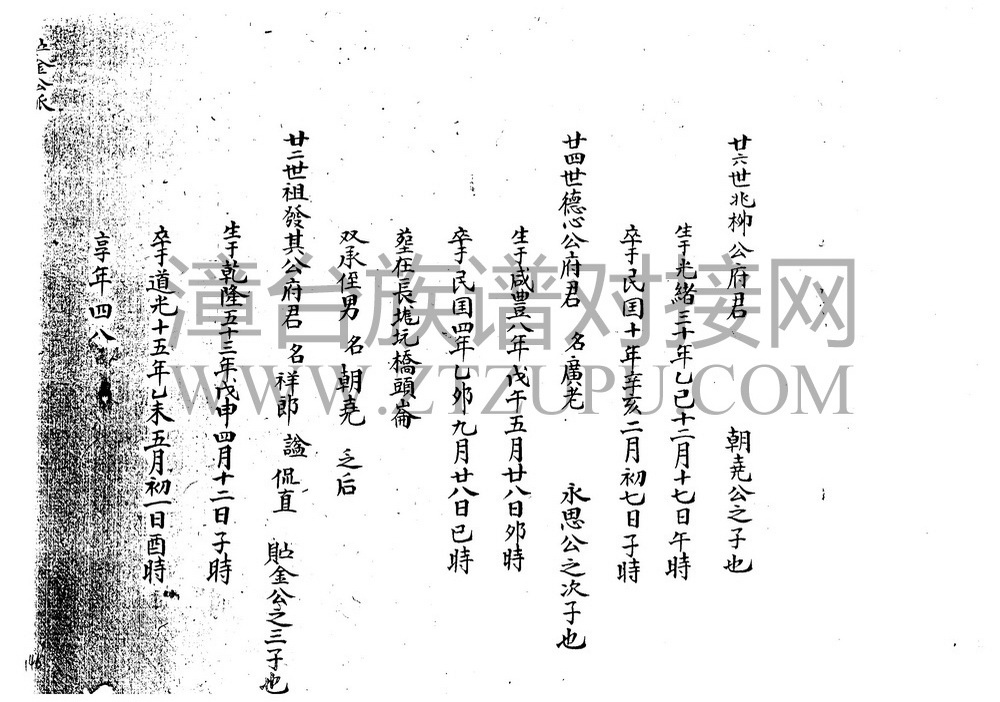 廿六世兆柳公府君 朝堯公之子也
生于光緒三十年乙巳十二月十七日午時
卒于民国十年辛亥二月初七日子時
廿四世德心公府君 名廣老 永思公之次子也
生于咸豊八年戊午五月廿八日卯時
卒于民国四年乙卯九月廿八日巳時
塟在長塊坑橋頭崙
双承侄男 名朝堯 乏后
廿二世祖發其公府君 名祥郎 謚侃直 貼金公之三子也
生于乾隆五十三年戊申四月十二日子時
卒于道光十五年乙未五月初一日酉時
享年四八
金公派
146
漳台族谱对接网
WWW.ZTZUPU.COM